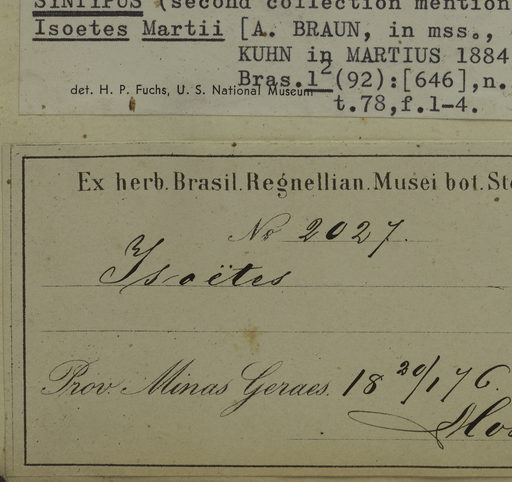 SINTIPUS (second collection mention
Isoetes Martii [A. BRAUN, in mss.,
KUHN in MARTIUS 1884
Bras.1²(92):[646],n.
det. H. P. Fuchs, U. S. National Museum
t.78,f.1-4.
Ex herb. Brasil. Regnellian. Musei bot. Sto
No 2027.
Isoëtes
Prov. Minas Geraes. 18 20/1 76.